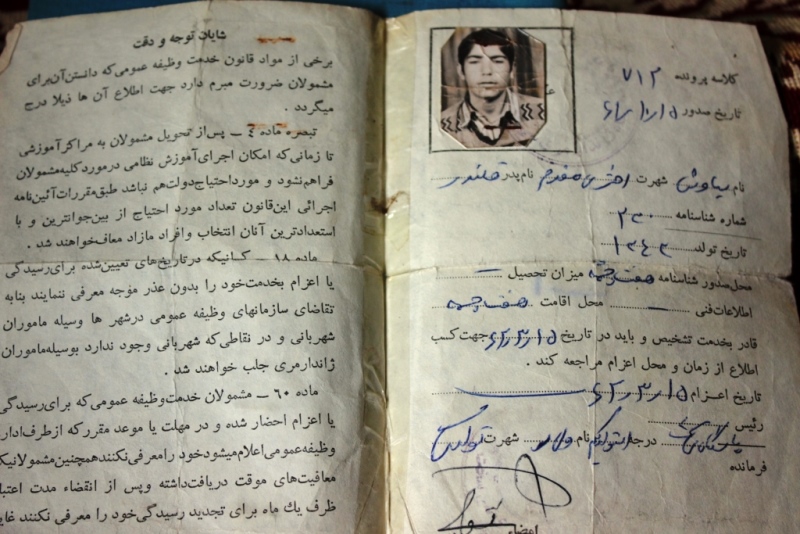 شایان توجه و دقت
برخی از مواد قانون خدمت وظیفه عمومی که دانستن آن برای
مشمولان ضرورت مبرم دارد جهت اطلاع آن ها ذیلا درج
میگردد .
تبصره ماده ٤ – پس از تحویل مشمولان به مراکز آموزشی
تا زمانی که امکان اجرای آموزش نظامی در مورد کلیه مشمولان
فراهم نشود و مورد احتیاج دولت هم نباشد طبق مقررات آئین نامه
اجرائی این قانون تعداد مورد احتیاج از بین جوانترین و با
استعدادترین آنان انتخاب و افراد مازاد معاف خواهند شد .
ماده ۱۸ – کسانیکه در تاریخ های تعیین شده برای رسیدگی
یا اعزام بخدمت خود را بدون عذر موجه معرفی ننمایند بنا به
تقاضای سازمانهای وظیفه عمومی در شهر ها وسیله ماموران
شهربانی و در نقاطی که شهربانی وجود ندارد بوسیله ماموران
ژاندارمری جلب خواهند شد .
ماده ٦٠ – مشمولان خدمت وظیفه عمومی که برای رسیدگی
یا اعزام احضار شده و در مهلت یا موعد مقرر که از طرف ادار
وظیفه عمومی اعلام میشود خود را معرفی نکنند همچنین مشمولانیک
معافیت های موقت دریافت داشته و پس از انقضاء مدت اعتبا
ظرف یك ماه برای تجدید رسیدگی خود را معرفی نکنند غا
کلاسه پرونده ۷۱۳
تاریخ صدور ۶۱/۱۰/۱۵
نام سیاوش شهرت مقدم نام پدر قلندر
شماره شناسنامه ۲۳۰
تاریخ تولد ۱۳۴۳
محل صدور شناسنامه هفت چشمه میزان تحصیل –
اطلاعات فنی – محل اقامت هفت چشمه
قادر بخدمت تشخیص و باید در تاریخ ۶۲/۳/۱۵ جهت کسب
اطلاع از زمان و محل اعزام مراجعه کند .
تاریخ اعزام ۶۲/۳/۱۵
رئیس
درجه استوایکم نام شهرت
فرمانده
امضاء